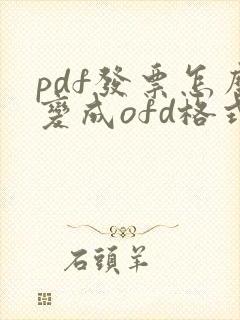 pdf發票怎麼
變成ofd格式
石頭羊